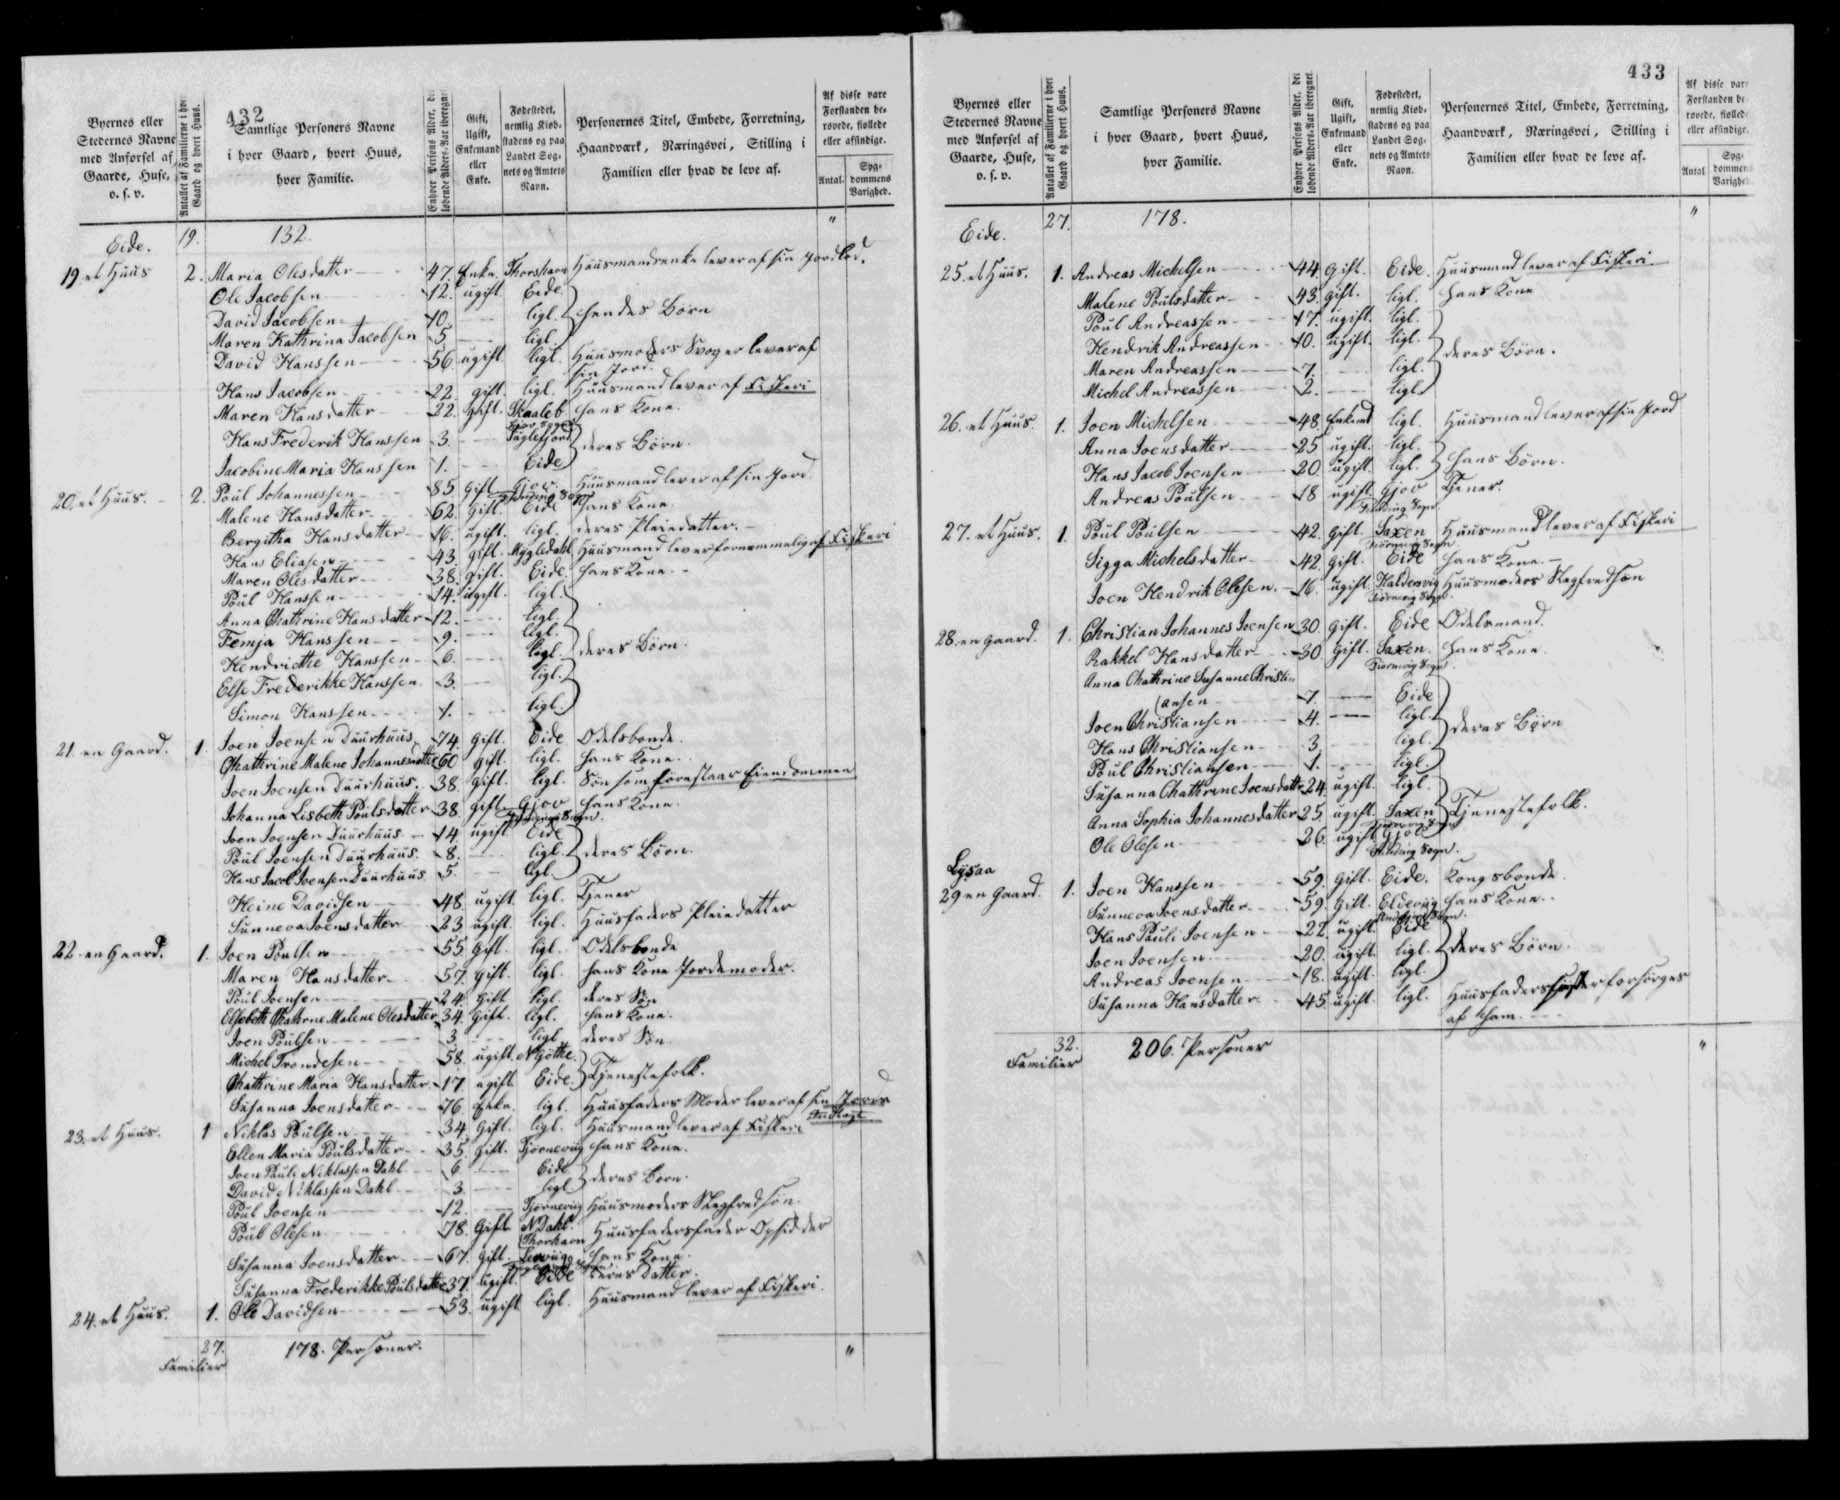 432
Byernes eller Stedernes Navne med Anførsel af Gaarde, Huse, o. s. v.
Antallet af Familierne i hver Gaard og hvert Huus.
Samtlige Personers Navne i hver Gaard, hvert Huus, hver Familie.
Enhver Persons Alder, det løbende Alders-Aar iberegnet.
Gift, Ugift, Enkemand eller Enke.
Fødestedet, nemlig Kiøbstadens og paa Landet Sognets og Amtets Navn.
Personernes Titel, Embede, Forretning, Haandværk, Næringsvei, Stilling i Familien eller hvad de leve af.
Af disse vare Forstanden berøvede, fiollede eller afsindige.
Antal. Sygdommens Varighed.
Eide. 19. 132. "
19 et Huus 2. Maria Olesdatter 47. Enke. Thorshavn Huusmandsenke lever af sin Jordlod.
Ole Jacobsen 12. ugift Eide
David Jacobsen 10 ligl. hendes Børn
Maren Kathrina Jacobsen 5 ligl.
David Hanssen 56 ugift ligl. Huusmoders Svoger lever af
sin Jord.
Hans Jacobsen 22. gift. ligl. Huusmand lever af Fiskeri
Maren Hansdatter 22. gift. Skaaleb hans Kone.
Hans Frederik Hanssen 3. Fuglefjord deres Børn.
Jacobine Maria Hanssen 1. Eide
20. et Huus. 2. Poul Johannessen 85 gift Gjov. Huusmand lever af sin Jord
Malene Hansdatter 62. gift. Eide hans Kone.
Bergitha Hansdatter 16. ugift. ligl. deres Pleiedatter.
Hans Eliasen 43. gift. Mygledahl Huusmand lever fornemmelig af Fiskeri
Maren Olesdatter 38. gift. Eide. hans Kone.
Poul Hanssen 14. ugift. ligl.
Anna Chathrine Hansdatter 12. ligl.
Femja Hanssen 9. ligl.
Hendricthe Hanssen 6. ligl. deres Børn.
Else Frederikke Hanssen 3. ligl.
Simon Hanssen 1. ligl.
21. en Gaard. 1. Joen Joensen Duurhuus 74. gift. Eide Odelsbonde.
Chathrine Malene Johannesdatter 60 gift. ligl. hans Kone.
Joen Joensen Duurhuus. 38. gift. ligl. Søn som forestaar Eiendommen
Johanna Lisbeth Poulsdatter 38. gift. Gjov hans Kone.
Joen Joensen Duurhuus 14. ugift Eide
Poul Joensen Duurhuus. 8. ligl. deres Børn.
Hans Jacob Joensen Duurhuus 5. ligl.
Heine Davidsen 48. ugift ligl. Tjener
Sunneva Joensdatter 23 ugift. ligl. Huusfaders Pleiedatter
22. en Gaard. 1. Joen Poulsen 55 gift. ligl. Odelsbonde
Maren Hansdatter 57. gift. ligl. hans Kone Jordemoder.
Poul Joensen 24. gift ligl. deres Søn
Elsebeth Chathrine Malene Olesdatter 34. gift. ligl. hans Kone.
Joen Poulsen 3. ligl. deres Søn.
Michel Trondesen 58. ugift.
Chathrine Maria Hansdatter 17. ugift Eide. Tjenestefolk.
Susanna Joensdatter 76. Enke. ligl. Huusfaders Moder lever af sin Jord
23. et Huus. 1 Niklas Poulsen 34. gift. ligl. Huusmand lever af Fiskeri
Ellen Maria Poulsdatter 35. gift. Tjørnevug hans Kone.
Joen Pauli Niklassen Dahl 6. Eide deres Børn.
David Niklassen Dahl 3. ligl.
Poul Joensen 12. Tjørnevug Huusmoders Slegfredsøn.
Poul Olesen 78. gift N. Dahl. Huusfadersfader Opsidder
Susanna Joensdatter 67. gift. hans Kone.
Susanna Frederikke Poulsdatter 37. ugift. Eide deres Datter.
24. et Huus. 1. Ole Davidsen 53. ugift ligl. Huusmand lever af Fiskeri.
27. Familier 178. Personer. "
433
Byernes eller Stedernes Navne med Anførsel af Gaarde, Huse, o. s. v.
Antallet af Familierne i hver Gaard og hvert Huus.
Samtlige Personers Navne i hver Gaard, hvert Huus, hver Familie.
Enhver Persons Alder, det løbende Alders-Aar iberegnet.
Gift, Ugift, Enkemand eller Enke.
Fødestedet, nemlig Kiøbstadens og paa Landet Sognets og Amtets Navn.
Personernes Titel, Embede, Forretning, Haandværk, Næringsvei, Stilling i Familien eller hvad de leve af.
Af disse vare Forstanden berøvede, fiollede eller afsindige.
Antal Sygdommens Varighed.
Eide. 27. 178. "
25. et Huus. 1. Andreas Michelsen 44. gift. Eide. Huusmand lever af Fiskeri.
Malene Poulsdatter 43. gift. ligl. hans Kone
Poul Andreassen 17. ugift. ligl.
Hendrik Andreassen 10. ugift. ligl. deres Børn.
Maren Andreassen 7. ligl.
Michel Andreassen 2. ligl.
26. et Huus. 1. Joen Michelsen 48. Enkemd ligl. Huusmand lever af sin Jord
Anna Joensdatter 25 ugift. ligl.
Hans Jacob Joensen 20. ugift. ligl. hans Børn.
Andreas Poulsen 18 ugift. Gjov Tjener.
27. et Huus. 1. Poul Poulsen 42. gift. Saxen Huusmand lever af Fiskeri
Sigga Michelsdatter 42. gift. Eide hans Kone
Joen Hendrik Olesen. 16. ugift. Haldervig Huusmoders Slegfredsøn
28. en Gaard. 1. Christian Johannes Joensen 30. gift. Eide Odelsmand.
Rakkel Hansdatter 30 gift. Saxen. hans Kone.
Anna Chathrine Susanne Christi
ansen 7. Eide
Joen Christiansen 4. ligl. deres Børn
Hans Christiansen 3 ligl.
Poul Christiansen 1. ligl.
Susanna Chathrine Joensdatter 24. ugift. ligl.
Anna Sophia Johannesdatter 25. ugift. Saxen Tjenestefolk.
Ole Olesen 26. ugift. Gjov
Lysaa
29 en Gaard. 1. Joen Hanssen 59. gift. Eide. Kongsbonde.
Sunneva Joensdatter 59. gift. Eldevug hans Kone.
Hans Pauli Joensen 22. ugift. Eide
Joen Joensen 20. ugift. ligl. deres Børn.
Andreas Joensen 18. ugift. ligl.
Susanna Hansdatter 45. ugift. ligl. Huusfaders Søster forsørges
af ham.
32. Familier 206. Personer "